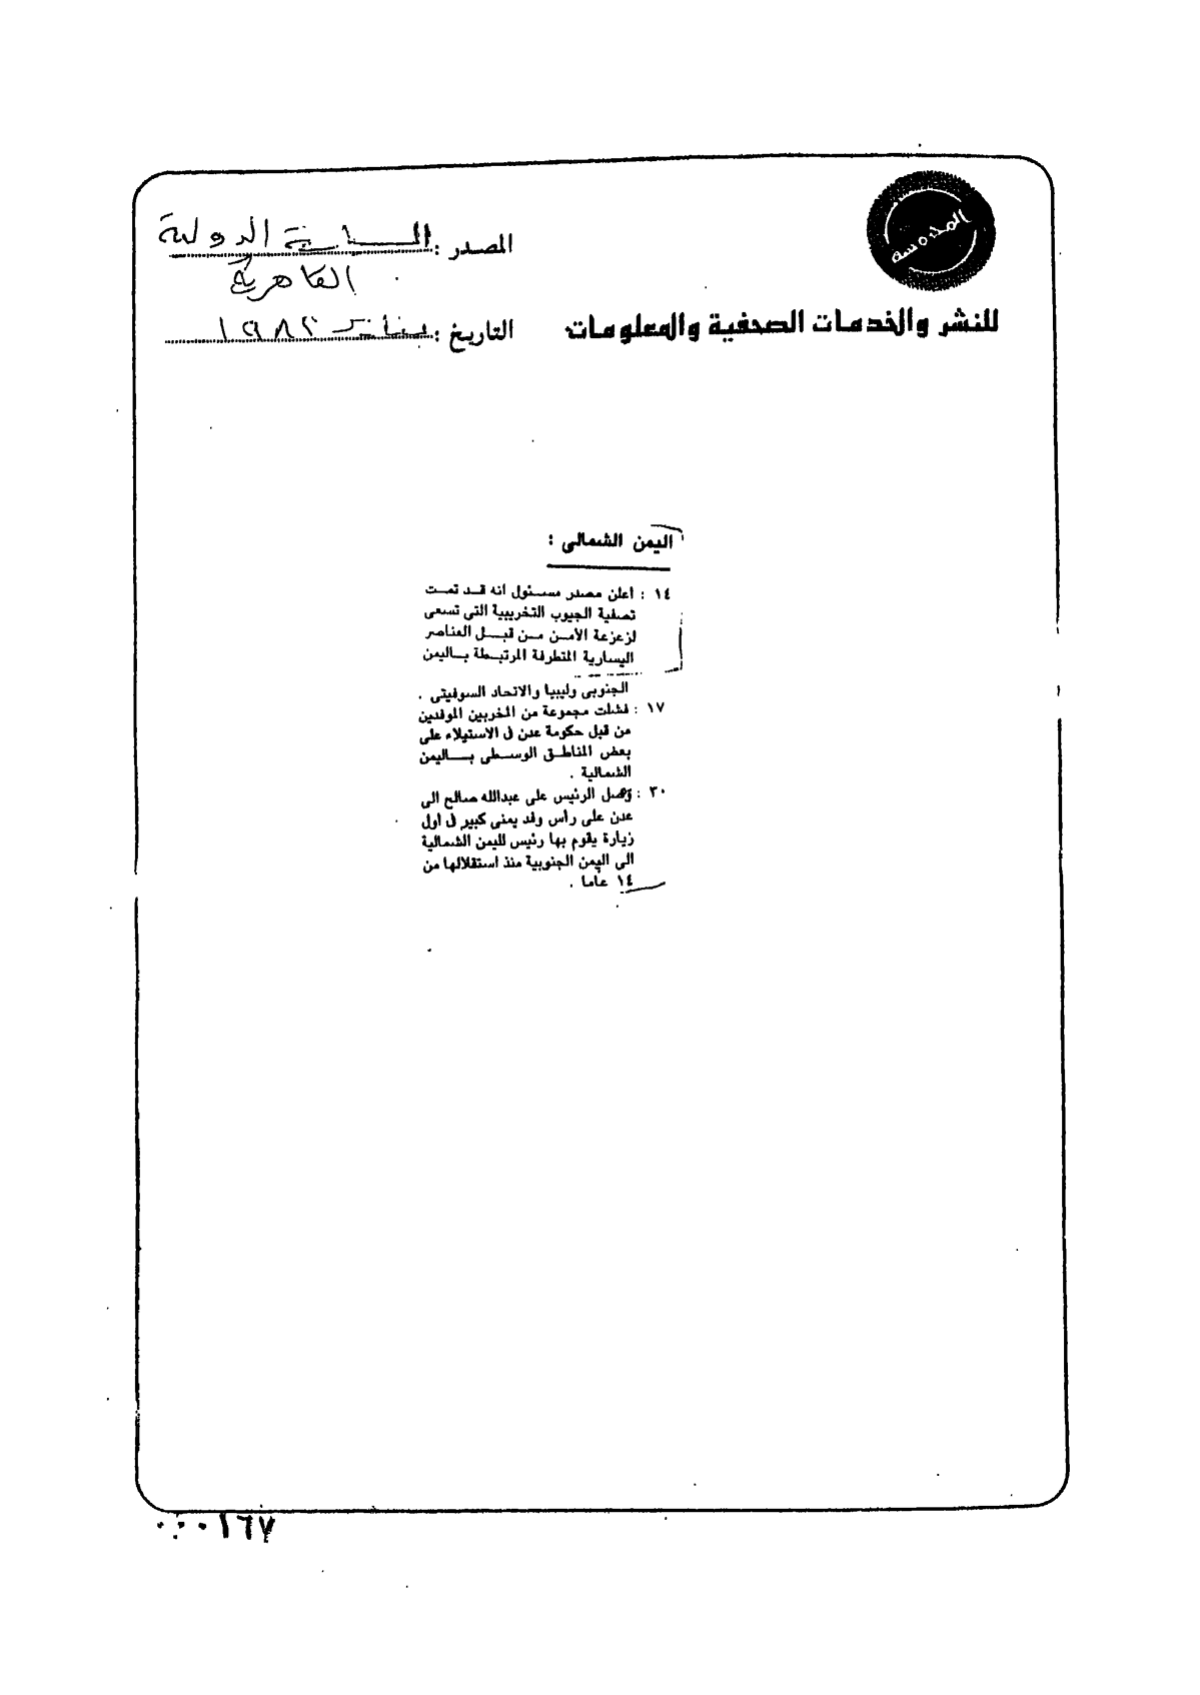 المحروسة
للنشر والخدمات الصحفية والمعلومات
المصدر : السياسة الدولية
القاهرية
التاريخ : يناير ١٩٨٢
اليمن الشمالى :
١٤ : اعلن مصدر مسئول انه قد تمت
تصفية الجيوب التخريبية التى تسعى
لزعزعة الأمن من قبل العناصر
اليسارية المتطرفة المرتبطة باليمن
الجنوبى وليبيا والاتحاد السوفيتى .
١٧ : فشلت مجموعة من المخربين الموفدين
من قبل حكومة عدن فى الاستيلاء على
بعض المناطق الوسطى باليمن
الشمالية .
٣٠ : وصل الرئيس على عبدالله صالح الى
عدن على راس وفد يمنى كبير فى اول
زيارة يقوم بها رئيس لليمن الشمالية
الى اليمن الجنوبية منذ استقلالها من
١٤ عاما .
٠٠٠١٦٧